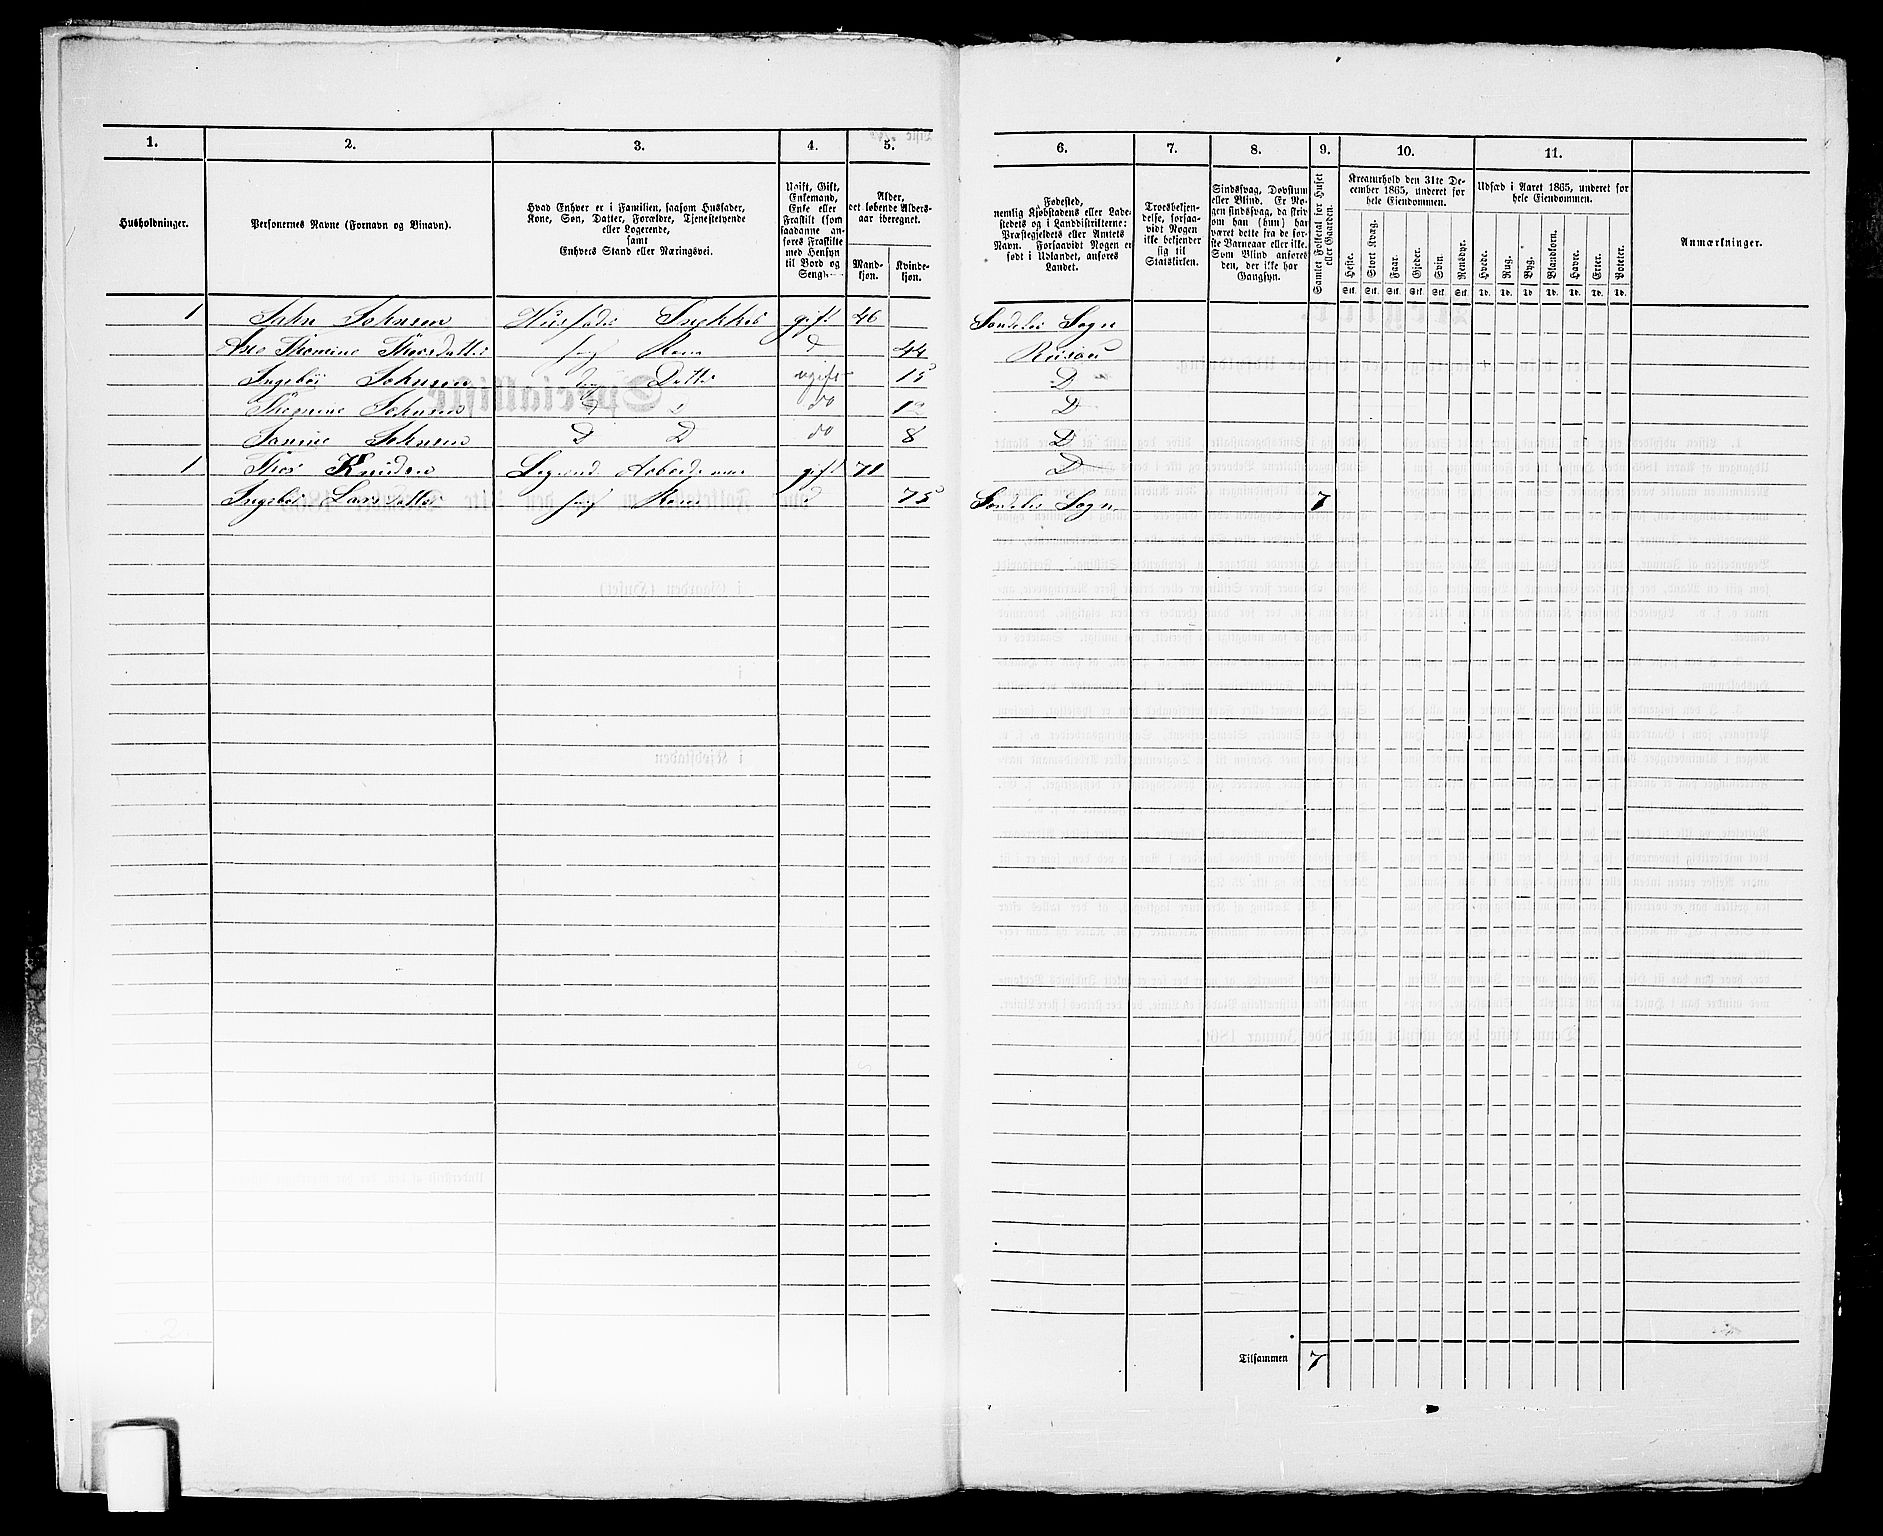 1. 2. 3. 4. 5. 6. 7. 8. 9. 10. 11.
Husholdninger.
Personernes Navne (Fornavn og Binavn).
Hvad Enhver er i Familien, saasom Husfader,
Kone, Søn, Datter, Forældre, Tjenestetyende
eller Logerende,
samt
Enhvers Stand eller Næringsvei.
Ugift, Gift,
Enkemand,
Enke eller
Fraskilt (som
saadanne an-
føres Fraskilte
med Hensyn
til Bord og
Seng).
Alder,
det løbende Alders-
aar iberegnet.
Mand-
kjøn.
Kvinde-
kjøn.
Fødested,
nemlig Kjøbstadens eller Lade-
stedets og i Landdistrikterne:
Præstegjeldets eller Amtets
Navn. Forsaavidt Nogen er
født i Udlandet, anføres
Landet.
Troesbekjen-
delse, forsaa-
vidt Nogen
ikke bekjender
sig til
Statskirken.
Sindssvag, Døvstum
eller Blind. Er No-
gen sindssvag, da skriv
om han (hun) har
været dette fra de før-
ste Barneaar eller ikke.
Som Blind anføres
den, der ikke har
Gangsyn.
Samlet Folketal for Huset
eller Gaarden.
Kreaturhold den 31te De-
cember 1865, underet for
hele Eiendommen.
Heste. Stort Kvæg. Faar. Gjeder. Svin. Rensdyr.
Stk. Stk. Stk. Stk. Stk. Stk.
Udsæd i Aaret 1865, underet for
hele Eiendommen.
Hvede. Rug. Byg. Blandkorn. Havre. Erter. Poteter.
Td. Td. Td. Td. Td. Td. Td.
Anmærkninger.
1 John Johnsen Husfader gift 46 Søndeløv Sogn
Thomine Thorsdatter Kone d 44 Risøer
Ingebor Johnsen Datter ugift 15 D
Thomine Johnsen D D do 12 D
Johnsen D D do 8 D
1 Knudsen gift 71 D
Ingebor Larsdatter Kone d 75 Søndeløv Sogn 7
2
Tilsammen 7